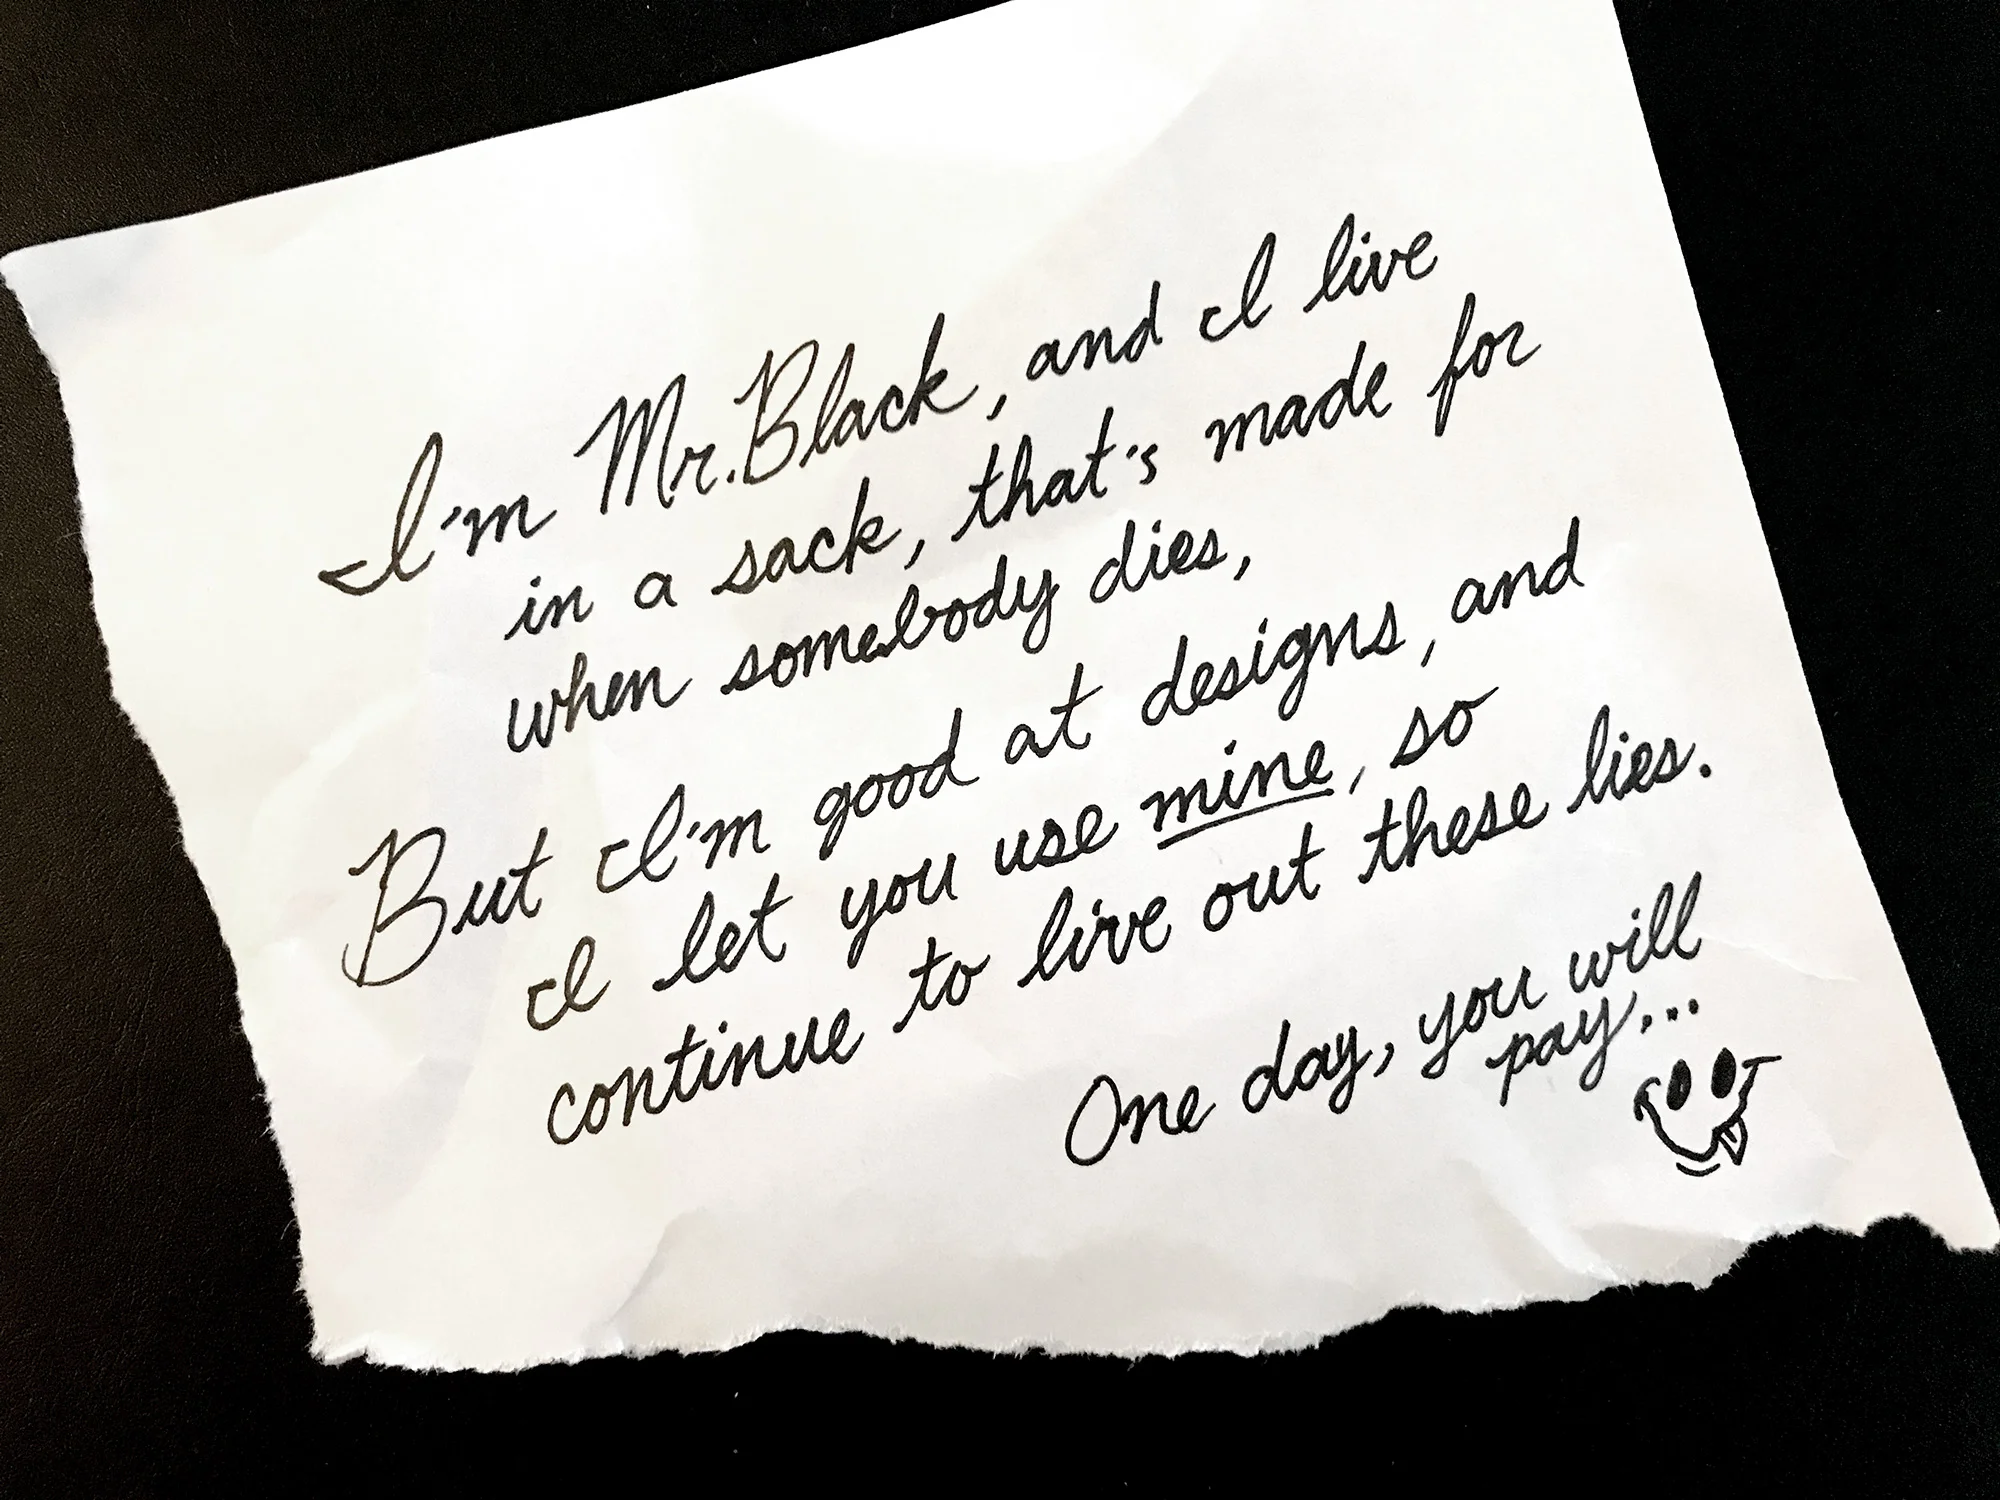 I'm Mr. Black, and I live
in a sack, that's made for
when somebody dies,
But I'm good at designs, and
I let you use mine, so
continue to live out these lies.
One day, you will
pay...